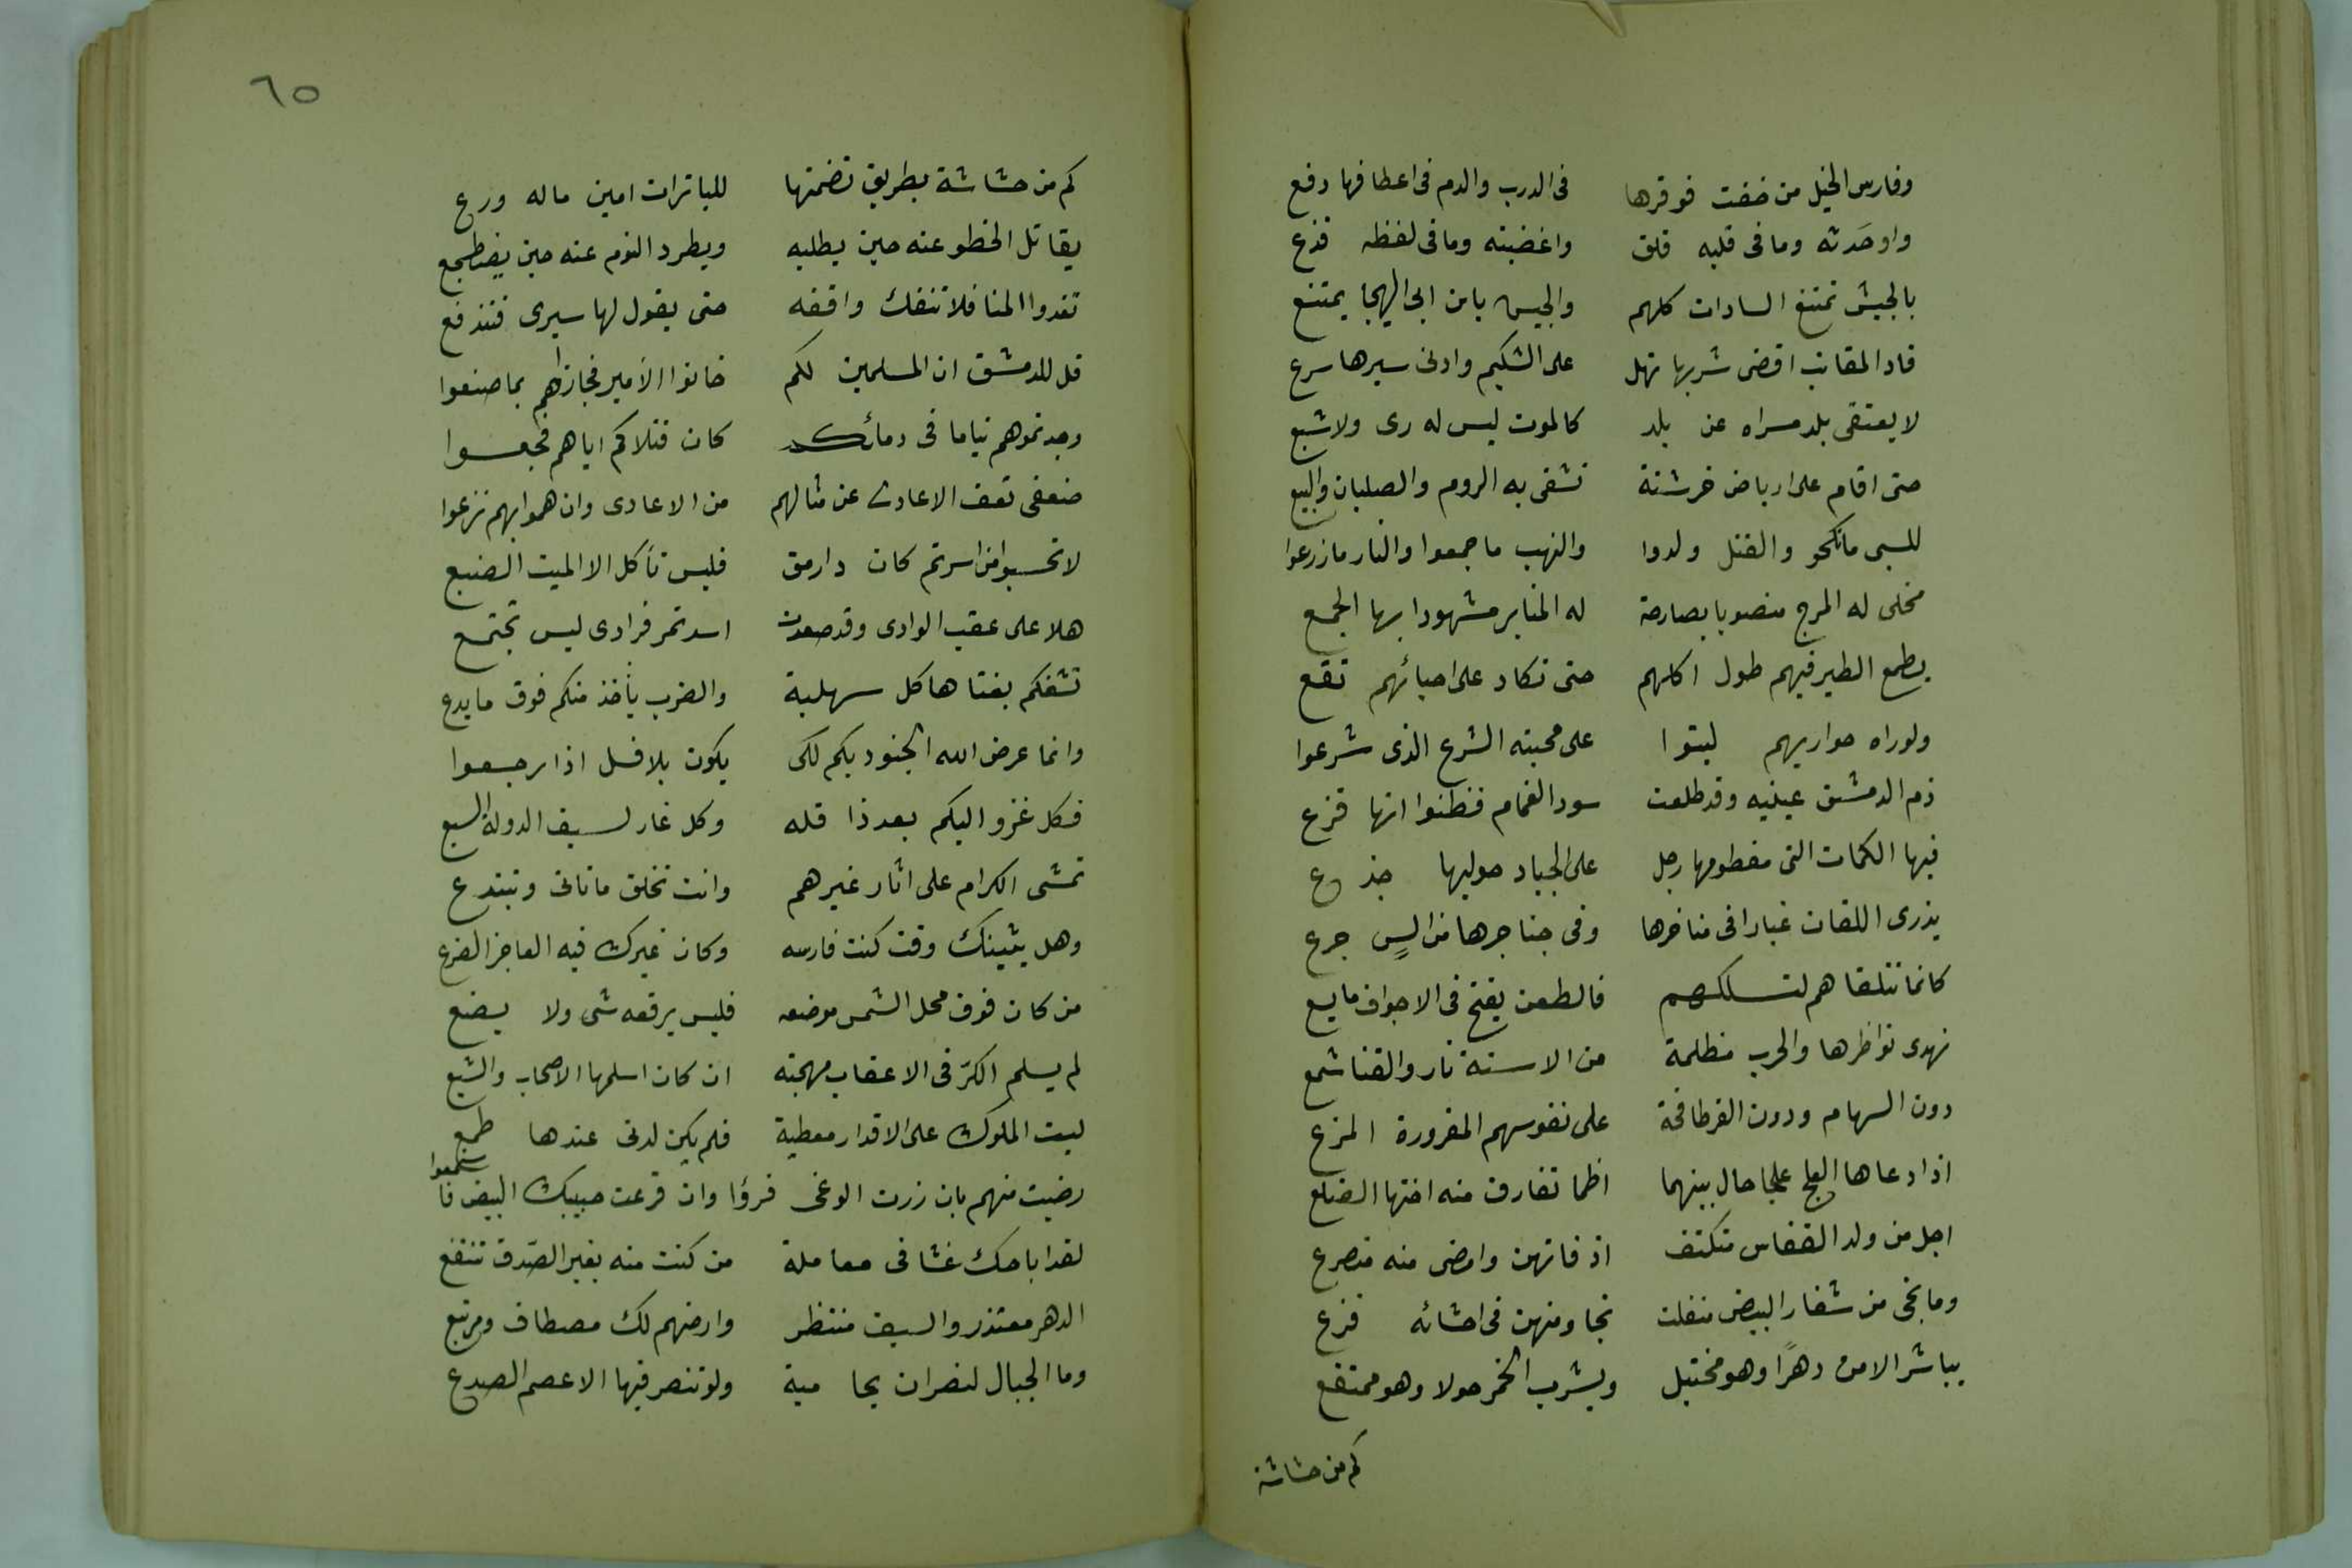 وفارس الخيل من خفت فوقرها في الدرب والدم في اعطافها دفع
واوحدته وما في قلبه قلق واغضبته وما في لفظه قذع
بالجيش تمتنع السادات كلهم والجيس بابن ابى الهيجا يمتنع
قاد المقانب اقضى شربها نهل على الشكيم وادنى سيرها سرع
لا يعتقى بلد مسراه عن بلد كالموت ليس له رى ولا شبع
حتى اقام على ارباض خرشنة تشقى به الروم والصلبان والبيع
للسبى ما نكحو والقتل ولدوا والنهب ما جمعوا والنار ما زرعوا
مخلى له المرج منصوبا بصارخة له المنابر مشهودا بها الجمع
يطمع الطير فيهم طول اكلهم حتى تكاد على احيائهم تقع
ولو راه حواريهم لبنوا على محبته الشرع الذى شرعوا
ذم الدمشق عينيه وقد طلعت سود الغمام فظنوا انها قزع
فيها الكمات التى مفطومها رجل على الجياد حوليها جذع
يذرى اللقان غبارا فى مناخرها وفى حناجرها من السٍ جرع
كانما تتلقاهم لتسلكهم فالطعن يفتح فى الاجواف ما يسع
تهدى نواظرها والحرب مظلمة من الاسنة نار والقنا شمع
دون السهام ودون القر طافحة على نفوسهم المقرورة المزع
اذا دعاها العلج علجا حال بينهما اظما تفارق منه اختها الضلع
اجل من ولد الفقاس منكتف اذ فاتهن وامضى منه منصرع
وما نجى من شفار البيض منفلت نجا ومنهن فى احشائه فزع
يباشر الامن دهرًا وهو مختبل ويشرب الخمر حولا وهو ممتقع
كم من حشاشة
٦٥
كم من حشاشة بطريق تضمنها للباترات امين ماله ورع
يقاتل الخطو عنه حين يطلبه ويطرد النوم عنه حين يضطجع
تغدوا المنا فلا تنفك واقفه حتى يقول لها سيرى فتندفع
قل للدمشق ان المسلمين لكم خانوا الأمير فجازاهم بما صنعوا
وجدتموهم نياما فى دمائكم كان قتلاكم اياهم فجعوا
ضعفى تعف الاعادى عن مثالهم من الاعادى وان هموا بهم نزعوا
لا تحسبوا من اسرتم كان دا رمق فليس تأكل الا الميت الضبع
هلا على عقب الوادى وقد صعدت اسد تمر فرادى ليس تجتمع
تشقكم بفتاها كل سهلبة والضرب يأخذ منكم فوق ما يدع
وانما عرض الله الجنود بكم لكى يكون بلا فسل اذا رجعوا
فكل غزو اليكم بعد ذا فله وكل غاز لسيف الدولة التبع
تمشى الكرام على اثار غيرهم وانت تخلق ما تاتى وتبتدع
وهل يشينك وقت كنت فارسه وكان غيرك فيه العاجز الضرع
من كان فوق محل الشمس موضعه فليس يرفعه شى ولا يضع
لم يسلم الكرّ فى الاعقاب مهجته ان كان اسلمها الاصحاب والشيع
ليت الملوك على الاقدار معطية فلم يكن لدنى عندها طمع
رضيت منهم بان زرت الوغى فرؤا وان قرعت حبيبك البيض فاسمعوا
لقد اباحك غشا فى معاملة من كنت منه بغير الصّدق تنتفع
الدهر معتذر والسيف منتظر وارضهم لك مصطاف ومرتبع
وما الجبال لنصران بحامية ولو تنصر فيها الاعصم الصدع